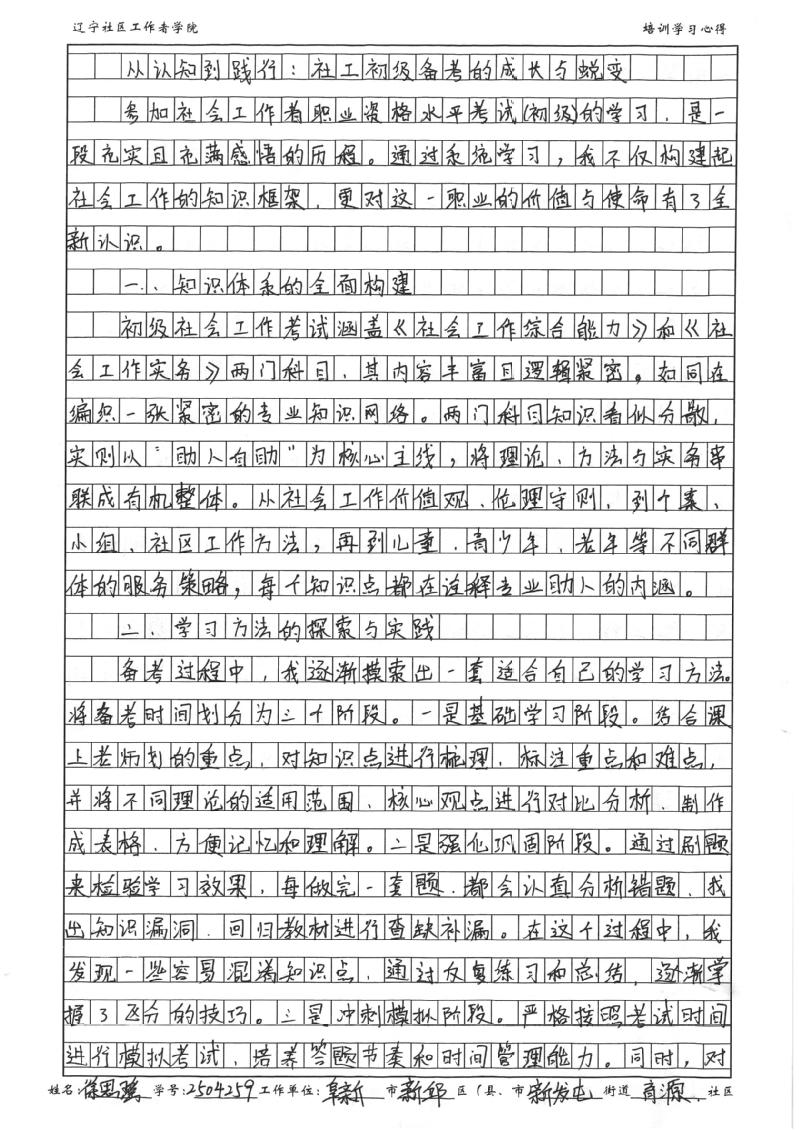 辽宁社区工作者学院 培训学习心得
从认知到践行：社工初级备考的成长与蜕变
参加社会工作者职业资格水平考试(初级)的学习，是一
段充实且充满感悟的历程。通过系统学习，我不仅构建起
社会工作的知识框架，更对这一职业的价值与使命有了全
新认识。
一、知识体系的全面构建
初级社会工作考试涵盖《社会工作综合能力》和《社
会工作实务》两门科目，其内容丰富且逻辑紧密。如同在
编织一张紧密的专业知识网络。两门科目知识看似分散，
实则以“助人自助”为核心主线，将理论、方法与实务串
联成有机整体。从社会工作价值观、伦理守则，到个案、
小组、社区工作方法，再到儿童、青少年、老年等不同群
体的服务策略，每个知识点都在诠释专业助人的内涵。
二、学习方法的探索与实践
备考过程中，我逐渐摸索出一套适合自己的学习方法。
将备考时间划分为三个阶段。一是基础学习阶段。结合课
上老师划的重点，对知识点进行梳理，标注重点和难点，
并将不同理论的适用范围、核心观点进行对比分析，制作
成表格，方便记忆和理解。二是强化巩固阶段。通过刷题
来检验学习效果，每做完一套题，都会认真分析错题，找
出知识漏洞，回归教材进行查缺补漏。在这个过程中，我
发现一些容易混淆知识点，通过反复练习和总结，逐渐掌
握了区分的技巧。三是冲刺模拟阶段。严格按照考试时间
进行模拟考试，培养答题节奏和时间管理能力。同时，对
姓名:徐思 学号:2504259 工作单位:阜新 市 新邱 区（县、市 新发屯 街道 育源 社区